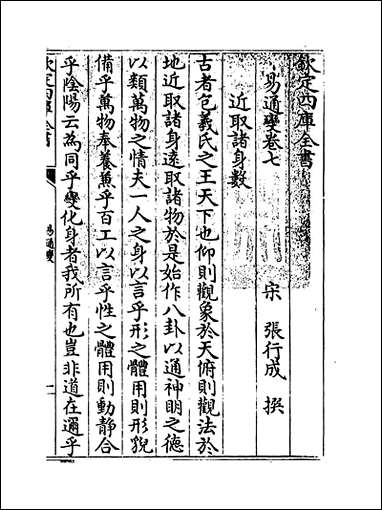 欽定四庫全書
易通變卷七
宋 張行成 撰
近取諸身數
古者包羲氏之王天下也仰則觀象於天俯則觀法於
地近取諸身遠取諸物於是始作八卦以通神明之德
以類萬物之情夫一人之身以言乎形之體用則形貌
備乎萬物奉養兼乎百工以言乎性之體用則動静合
乎陰陽云為同乎變化身者我所有也豈非道在邇乎
欽定四庫全書
易通變
一